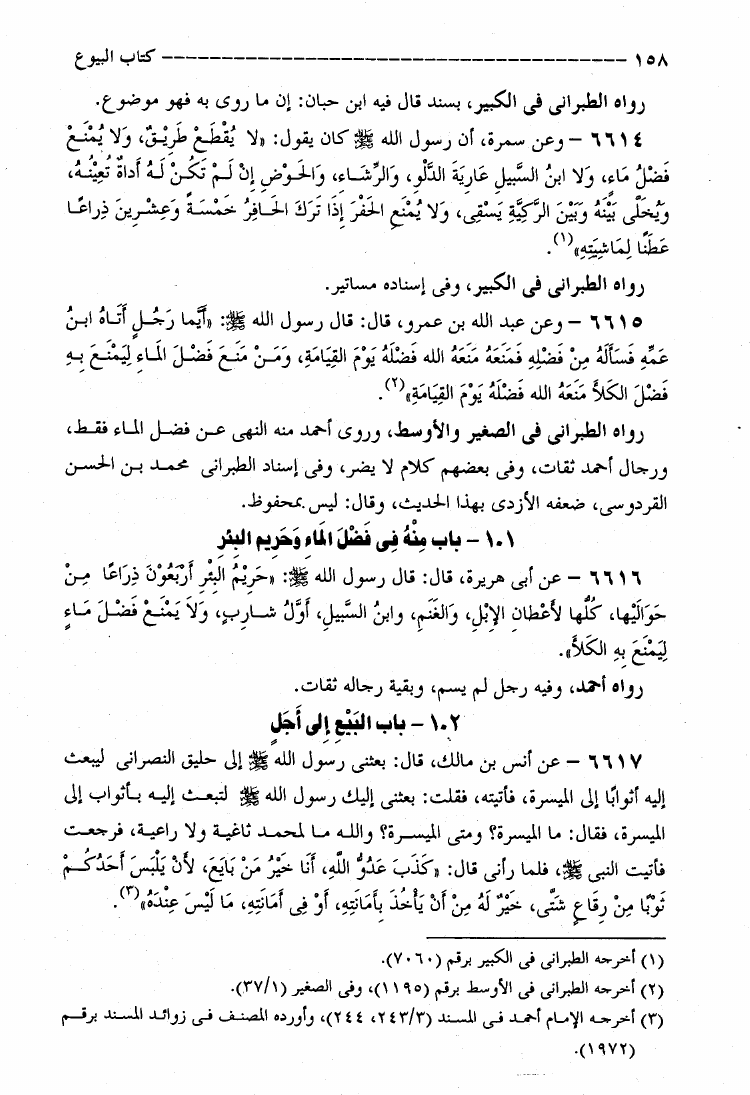 ١٥٨ ــــــــــــــــــــــــــــــــــــــــــــــــــــــــــــــــــ كتاب البيوع
رواه الطبرانى فى الكبير، بسند قال فيه ابن حبان: إن ما روى به فهو موضوع.
٦٦١٤ – وعن سمرة، أن رسول الله ﷺ كان يقول: «لا يُقْطَعْ طَرِيْقٌ، وَلا يُمْنَعْ
فَضْلُ مَاءٍ، وَلا ابنُ السَّبيلِ عَارِيَةَ الدَّلْوِ، وَالرِّشَاءِ، وَالحَوْضِ إِنْ لَمْ تَكُنْ لَهُ أداةٌ تُعِيْنُهُ،
وَيُخَلَّى بَيْنَهُ وَبَيْنَ الرَّكِيَّةِ يَسْقِى، وَلا يُمْنَعِ الحَفْرَ إِذَا تَرَكَ الحَافِرُ خَمْسَةً وَعِشْرِينَ ذِرَاعًا
عَطَنًا لِمَاشِيَتِهِ»(١).
رواه الطبرانى فى الكبير، وفى إسناده مساتير.
٦٦١٥ – وعن عبد الله بن عمرو، قال: قال رسول الله ﷺ: «أَيَّما رَجُلٍ أَتَاهُ ابنُ
عَمِّهِ فَسَأَلَهُ مِنْ فَضْلِهِ فَمَنَعَهُ مَنَعَهُ الله فَضْلَهُ يَوْمَ القِيَامَةِ، وَمَنْ مَنَعَ فَضْلَ المَاءِ لِيَمْنَعَ بِهِ
فَضْلَ الكَلأَ مَنَعَهُ الله فَضْلَهُ يَوْمَ القِيَامَةِ»(٢).
رواه الطبرانى فى الصغير والأوسط، وروى أحمد منه النهى عن فضل الماء فقط،
ورجال أحمد ثقات، وفى بعضهم كلام لا يضر، وفى إسناد الطبرانى محمد بن الحسن
القردوسى، ضعفه الأزدى بهذا الحديث، وقال: ليس بمحفوظ.
١٠١ – باب مِنْهُ فِى فَضْلِ المَاءِ وَحَرِيمِ البِئْرِ
٦٦١٦ – عن أبى هريرة، قال: قال رسول الله ﷺ: «حَرِيْمُ البِئْرِ أَرْبَعُوْنَ ذِرَاعًا مِنْ
حَوَالَيْها، كُلُّها لأَعْطانِ الإِبْلِ، وَالغَنَمِ، وابنُ السَّبِيلِ، أَوَّلُ شَارِبٍ، وَلاَ يَمْنَعْ فَضْلَ مَاءٍ
لِيَمْنَعَ بِهِ الكَلأَ».
رواه أحمد، وفيه رجل لم يسم، وبقية رجاله ثقات.
١٠٢ – باب البَيْعِ إِلى أَجَلٍ
٦٦١٧ – عن أنس بن مالك، قال: بعثنى رسول الله ﷺ إلى حليق النصرانى ليبعث
إليه أثوابًا إلى الميسرة، فأتيته، فقلت: بعثنى إليك رسول الله ﷺ لتبعث إليه بأثواب إلى
الميسرة، فقال: ما الميسرة؟ ومتى الميسرة؟ والله ما لمحمد ثاغية ولا راعية، فرجعت
فأتيت النبى ﷺ، فلما رأنى قال: «كَذَبَ عَدُوُّ اللَّهِ، أَنَا خَيْرُ مَنْ بَايَعَ، لأَنْ يَلْبَسَ أَحَدُكُمْ
ثَوْبًا مِنْ رِقَاعٍ شَتَّى، خَيْرٌ لَهُ مِنْ أَنْ يَأْخُذَ بِأَمَانَتِهِ، أَوْ فِى أَمَانَتِهِ، مَا لَيْسَ عِنْدَهُ»(٣).
(١) أخرجه الطبرانى فى الكبير برقم (٧٠٦٠).
(٢) أخرجه الطبرانى فى الأوسط برقم (١١٩٥)، وفى الصغير (٣٧/١).
(٣) أخرجه الإمام أحمد فى المسند (٢٤٣/٣، ٢٤٤)، وأورده المصنف فى زوائد المسند برقم
(١٩٧٢).